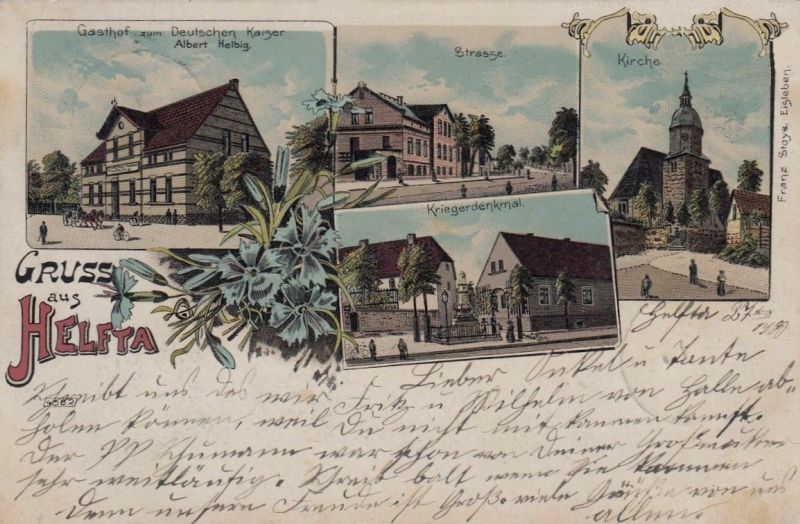 Gasthof zum Deutschen Kaiser
Albert Helbig.
Strasse.
Kirche
Kriegerdenkmal.
Franz Stoye, Eisleben.
GRUSS
aus
HELFTA
Helfta 27
Lieber Onkel u Tante
Schreibt uns das wir Fritz u Wilhelm von Halle ab=
holen können, weil Du nicht mit kannen kannst.
Der PP Schumann war schon von Deiner Großmutter
sehr weitläufig. Schreib balt wenn Sie kommen
denn unsere Freude ist Groß. viele Grüße von uns
allen.